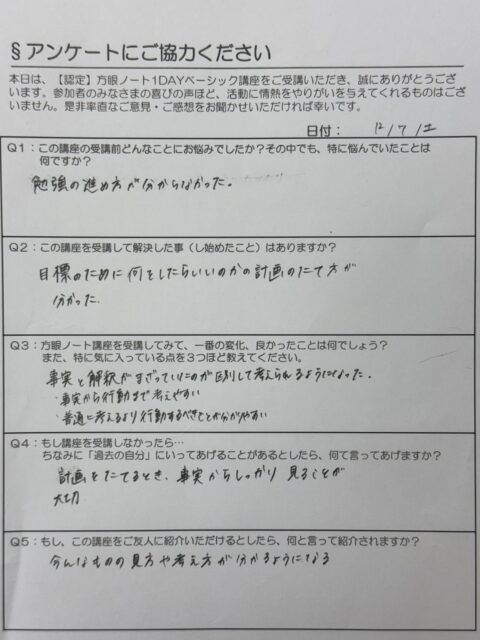 §アンケートにご協力ください
本日は、【認定】方眼ノート1DAYベーシック講座をご受講いただき、誠にありがとうござ
います。参加者のみなさまの喜びの声ほど、活動に情熱をやりがいを与えてくれるものはござ
いません。是非率直なご意見・ご感想をお聞かせいただければ幸いです。
日付： 12/7/土
Q1：この講座の受講前どんなことにお悩みでしたか？その中でも、特に悩んでいたことは
何ですか？
勉強の進め方が分からなかった。
Q2：この講座を受講して解決した事（し始めたこと）はありますか？
目標のために何をしたらいいのかの計画のたて方が
分かった
Q3：方眼ノート講座を受講してみて、一番の変化、良かったことは何でしょう？
また、特に気に入っている点を3つほど教えてください。
事実と解釈がまざっていたのが区別して考えられるようになった.
・事実から行動まで考えやすい
・普通に考えるより行動するべきことが分かりやすい
Q4：もし講座を受講しなかったら…
ちなみに「過去の自分」にいってあげることがあるとしたら、何て言ってあげますか？
計画をたてるとき、事実からしっかり見ることが
大切
Q5：もし、この講座をご友人に紹介いただけるとしたら、何と言って紹介されますか？
ものの見方や考え方が分かるようになる